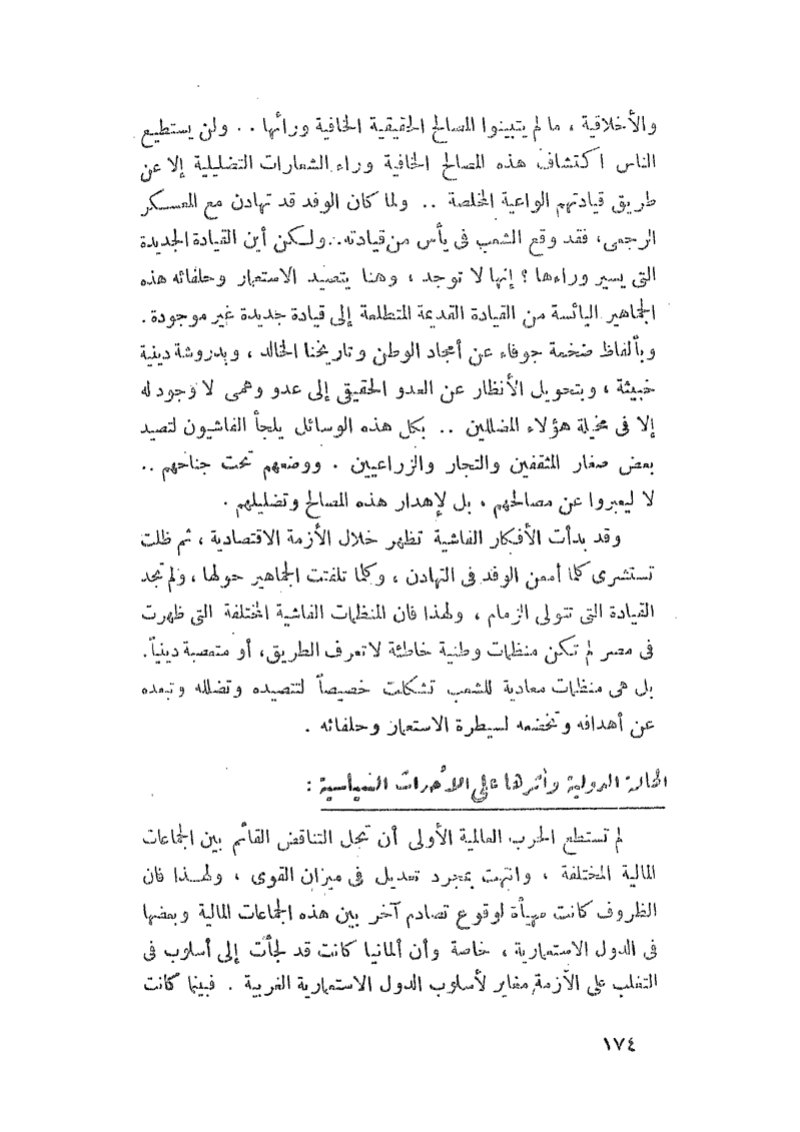 والأخلاقية ، ما لم يتبينوا المصالح الحقيقية الخافية ورائها . . ولن يستطيع
الناس اكتشاف هذه المصالح الخافية وراء الشعارات التضليلية إلا عن
طريق قيادتهم الواعية المخلصة . . ولما كان الوفد قد تهادن مع المعسكر
الرجعى، فقد وقع الشعب فى يأس من قيادته. . ولكن أين القيادة الجديدة
التى يسير وراءها ؟ إنها لا توجد ، وهنا يتصيد الاستعمار وحلفائه هذه
الجماهير اليائسة من القيادة القديمة المتطلعة إلى قيادة جديدة غير موجودة .
وبألفاظ ضخمة جوفاء عن أمجاد الوطن وتاريخنا الخالد ، وبدروشة دينية
خبيثة ، وبتحويل الأنظار عن العدو الحقيقى إلى عدو وهمى لا وجود له
إلا فى مخيلة هؤلاء المضللين . . بكل هذه الوسائل يلجأ الفاشيون لتصيد
بعض صغار المثقفين والتجار والزراعيين . ووضعهم تحت جناحهم . .
لا ليعبروا عن مصالحهم ، بل لإهدار هذه المصالح وتضليلهم .
وقد بدأت الأفكار الفاشية تظهر خلال الأزمة الاقتصادية ، ثم ظلت
تستشرى كلما أمعن الوفد فى التهادن ، وكلما تلفتت الجماهير حولها ، ولم تجد
القيادة التى تتولى الزمام ، ولهذا فان المنظمات الفاشية المختلفة التى ظهرت
فى مصر لم تكن منظمات وطنية خاطئة لا تعرف الطريق، أو متعصبة دينياً.
بل هى منظمات معادية للشعب تشكلت خصيصاً لتتصيده وتضلله وتبعده
عن أهدافه وتخضعه لسيطرة الاستعمار وحلفائه .
الحالة الدولية وأثرها على الأحداث السياسية :
لم تستطع الحرب العالمية الأولى أن تحل التناقض القائم بين الجماعات
المالية المختلفة ، وانتهت بمجرد تعديل فى ميزان القوى ، ولهذا فان
الظروف كانت مهيأة لوقوع تصادم آخر بين هذه الجماعات المالية وبعضها
فى الدول الاستعمارية ، خاصة وأن ألمانيا كانت قد لجأت إلى أسلوب فى
التغلب على الأزمة مغاير لأسلوب الدول الاستعمارية الغربية . فبينما كانت
١٧٤